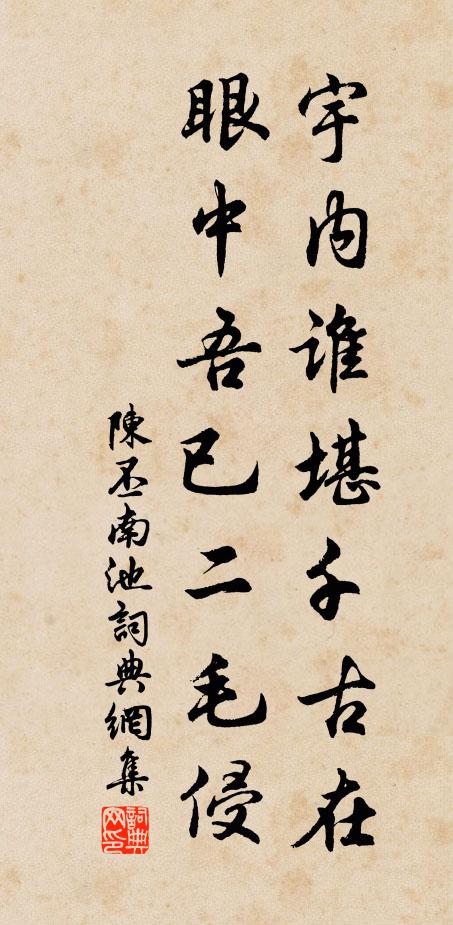 宇內誰堪千古在
眼中吾已二毛侵
陳丕南池詞典網集
詞典網印